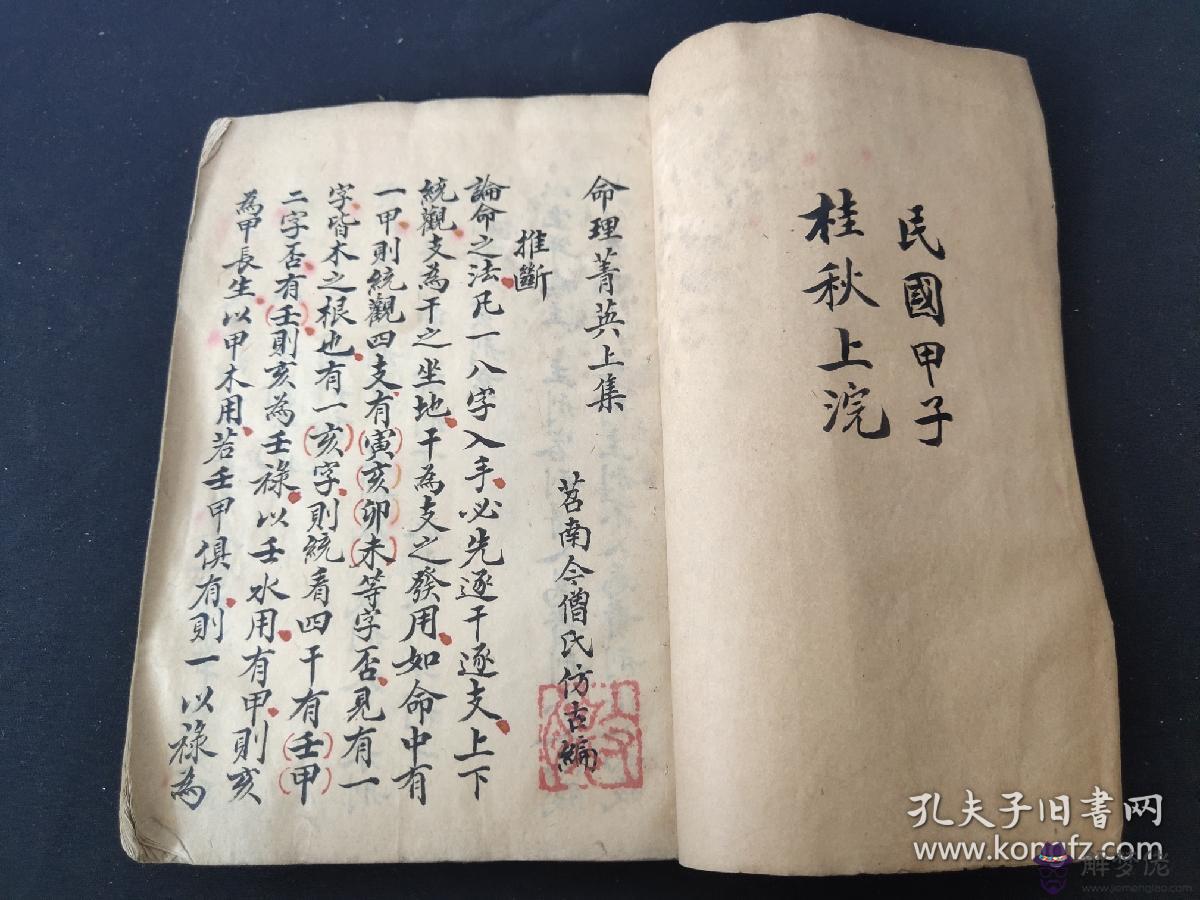 民國甲子
桂秋上浣
命理菁英上集
苕南今僧氏仿古編
推斷
論命之法凡一八字入手必先逐干逐支上下
統觀支為干之坐地干為支之發用如命中有
一甲則統觀四支有(寅)(亥)(卯)(未)等字否見有一
字皆木之根也有一(亥)字則統看四干有(壬)(甲)
二字否有(壬)則亥為壬祿以壬水用有甲則亥
為甲長生以甲木用若壬甲俱有則一以祿為
孔夫子旧書网
www.kongfz.com
解梦佬
www.jiemenglao.com